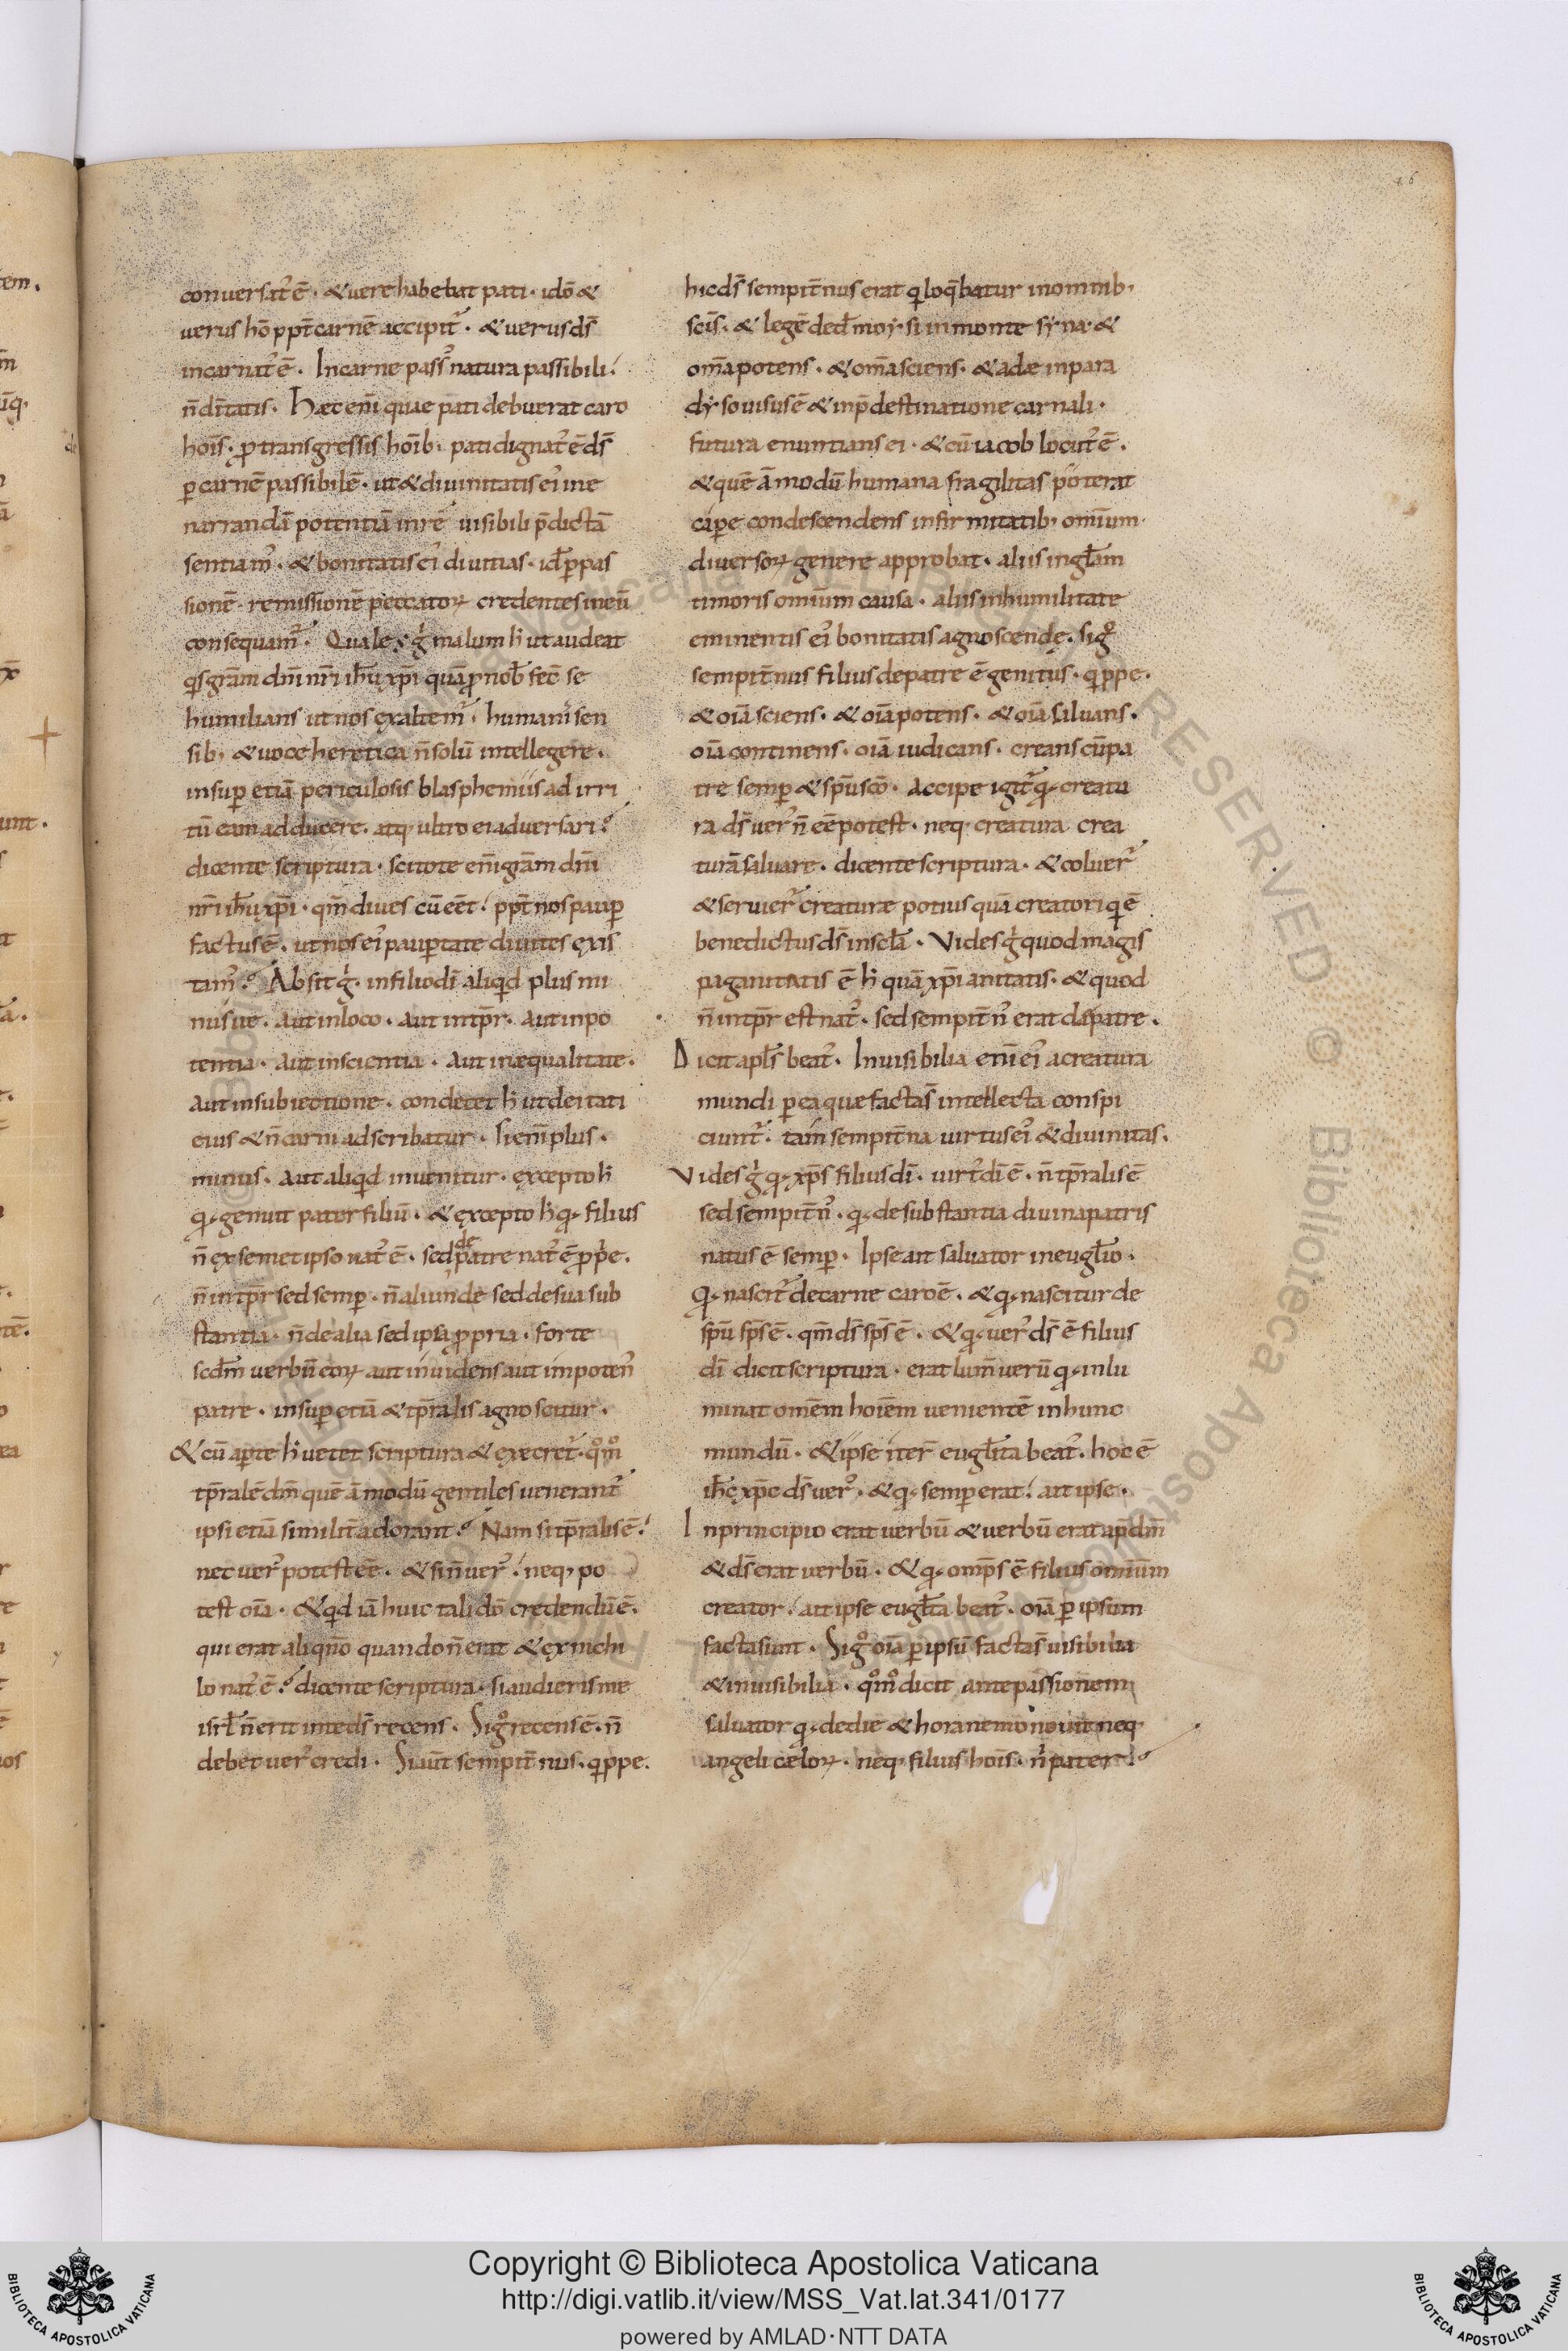 conuersat᷒ ē · & uere habebat pati · idō &
uerus hō ppt̄ carnē accipit᷒ · & uerus ds̄
incarnat᷒ ē · In carne pass᷒ natura passibili·
n̄ dītatis · Haec enī quae pati debuerat caro
hoīs · ꝓ transgressis hoīb· pati dignat᷒ ē ds̄
ꝑ carnē passibilē · ut & diuinitatis ei᷒ ine
narrandā potentiā in rē uisibili p̄dictā
sentiam᷒ · & bonitatis ei᷒ diuitias · id ꝑ pas
sionē · remissionē peccatoꝝ credentes in eū
consequam᷒ · Quale ē g̊ malum h̄ ut audeat
qis grām dn̄i nr̄i ih̄u xp̄i quā ꝓ nob̄ fec̄ se
humilians ut nos exaltem᷒ · humanis sen
sib; & uoce heretica n̄ solū intellegere ·
insuꝑ etiā periculosis blasphemiis ad irri
tū eam adducere · atq; ultro ei aduersari ?
dicente scriptura · scitote enī grām dn̄i
nr̄i ih̄u xp̄i · qm̄ diues cū eēt · ppt̄ nos pauꝑ
factus ē · ut nos ei᷒ pauꝑtate diuites exis
tam᷒ ? Absit g̊ · in filio dī aliqid plus mi
nusue · aut in loco · aut in tp̄r · aut in po
tentia · aut in scientia · aut in æqualitate ·
aut in subiectione · condecet h̄ ut deitati
eius & n̄ carni adscribatur · Si enī plus ·
minus · aut aliqid inuenitur · excepto h̄
qꝫ genuit pater filiū · & excepto h̄ qꝫ filius
n̄ ex semet ipso nat᷒ ē · sed de patre nat᷒ ē ꝓpe ·
n̄ in tp̄r sed semꝑ · n̄ aliunde sed de sua sub
stantia · n̄ de alia sed ipsa ꝓpria · forte
scdm̄ uerbū eoꝝ aut inuidens aut impotens
patre · insuꝑ etiā & tp̄ralis agnoscitur ·
& cū aꝑte h̄ uetet scriptura & execret᷒ · qm̊
tp̄ralē dm̄ quē ām̄odū gentiles uenerant᷒
ipsi etiā similit̄ adorant ? Nam si tp̄ralis ē ·
nec uer᷒ potest eē · & si n̄ uer᷒ · neq; po
test oīa · & qid iā huic tali dō credendū ē ·
qui erat aliqn̄o quando n̄ erat & ex nichi
lo nat᷒ ē ? dicente scriptura · si audieris me
isrl̄ n̄ erit in te ds̄ recens · Sig̊ recens ē · n̄
debet uer᷒ credi · Si aūt sempit̄nus · qippe ·
hic ds̄ sempit̄nus erat qi loq̄batur in omnib;
scīs · & legē ded̄ moysi in monte syna · &
om̄a potens · & om̄a sciens · & adæ in para
dyso uisus ē & in p̄destinatione carnali ·
futura enuntians ei · & cū iacob locut᷒ ē ·
& quē ām̄odū humana fragilitas poterat
caꝑe condescendens infirmitatib; omīum ·
diuersoꝝ genere approbat · aliis in gl̄am
timoris omīum causa · aliis in humilitate
eminentis ei᷒ bonitatis agnoscendę · sig̊
sempit̄nus filius de patre ē genitus · qippe ·
& oīa sciens · & oīa potens · & oīa saluans ·
oīa continens · oīa iudicans · creans cū pa
tre semꝑ & sp̄u sc̄o · Accipe igit᷒ qꝫ creatu
ra ds̄ uer᷒ n̄ eē potest · neq; creatura crea
turā saluare · dicente scriptura · & coluer᷒
& seruier᷒ creaturæ potius quā creatori qi ē
benedictus ds̄ in scl̄a · Vides g̊ quod magis
paganitatis ē h̄ quā xp̄ianitatis · & quod
n̄ in tp̄r est nat᷒ · sed sempit̄n᷒ erat de patre ·
Dicit apl̄s beat᷒ · Inuisibilia enī ei᷒ a creatura
mundi ꝑ ea que facta s̄ intellecta conspi
ciunt᷒ · tam sempit̄na uirtus ei᷒ & diuinitas ·
Vides g̊ qꝫ xp̄s filius dī · uirt᷒ dī ē · n̄ tp̄ralis ē
sed sempit̄n᷒ · qꝫ de substantia diuina patris
natus ē semꝑ · Ipse ait saluator in eugl̄io ·
Qꝫ nascit᷒ de carne caro ē · & qꝫ nascitur de
sp̄u sp̄s ē · qm̄ ds̄ sp̄s ē · & qꝫ uer᷒ ds̄ ē filius
dī dicit scriptura · erat lum̄ uerū qꝫ inlu
minat omēm hoīem uenientē in hunc
mundū · & ipse iter̄ eugl̄ita beat᷒ · hoc ē
ih̄c xp̄c ds̄ uer᷒ · & qꝫ semꝑ erat · ait ipse ·
In principio erat uerbū & uerbū erat ap̄ dm̄
& ds̄ erat uerbū · & qꝫ omp̄s ē filius omīum
creator · ait ipse eugl̄ta beat᷒ · oīa ꝑ ipsum
facta sunt · Sig̊ oīa ꝑ ipsū facta s̄ uisibilia
& inuisibilia · qm̊ dicit ante passionem
saluator qꝫ de die & hora nemo nouit neq;
angeli cæloꝝ · neq; filius hoīs · n᷒ pater ?
Copyright © Biblioteca Apostolica Vaticana
http://digi.vatlib.it/view/MSS_Vat.lat.341/0177
powered by AMLAD·NTT DATA
BIBLIOTECA APOSTOLICA VATICANA
BIBLIOTECA APOSTOLICA VATICANA